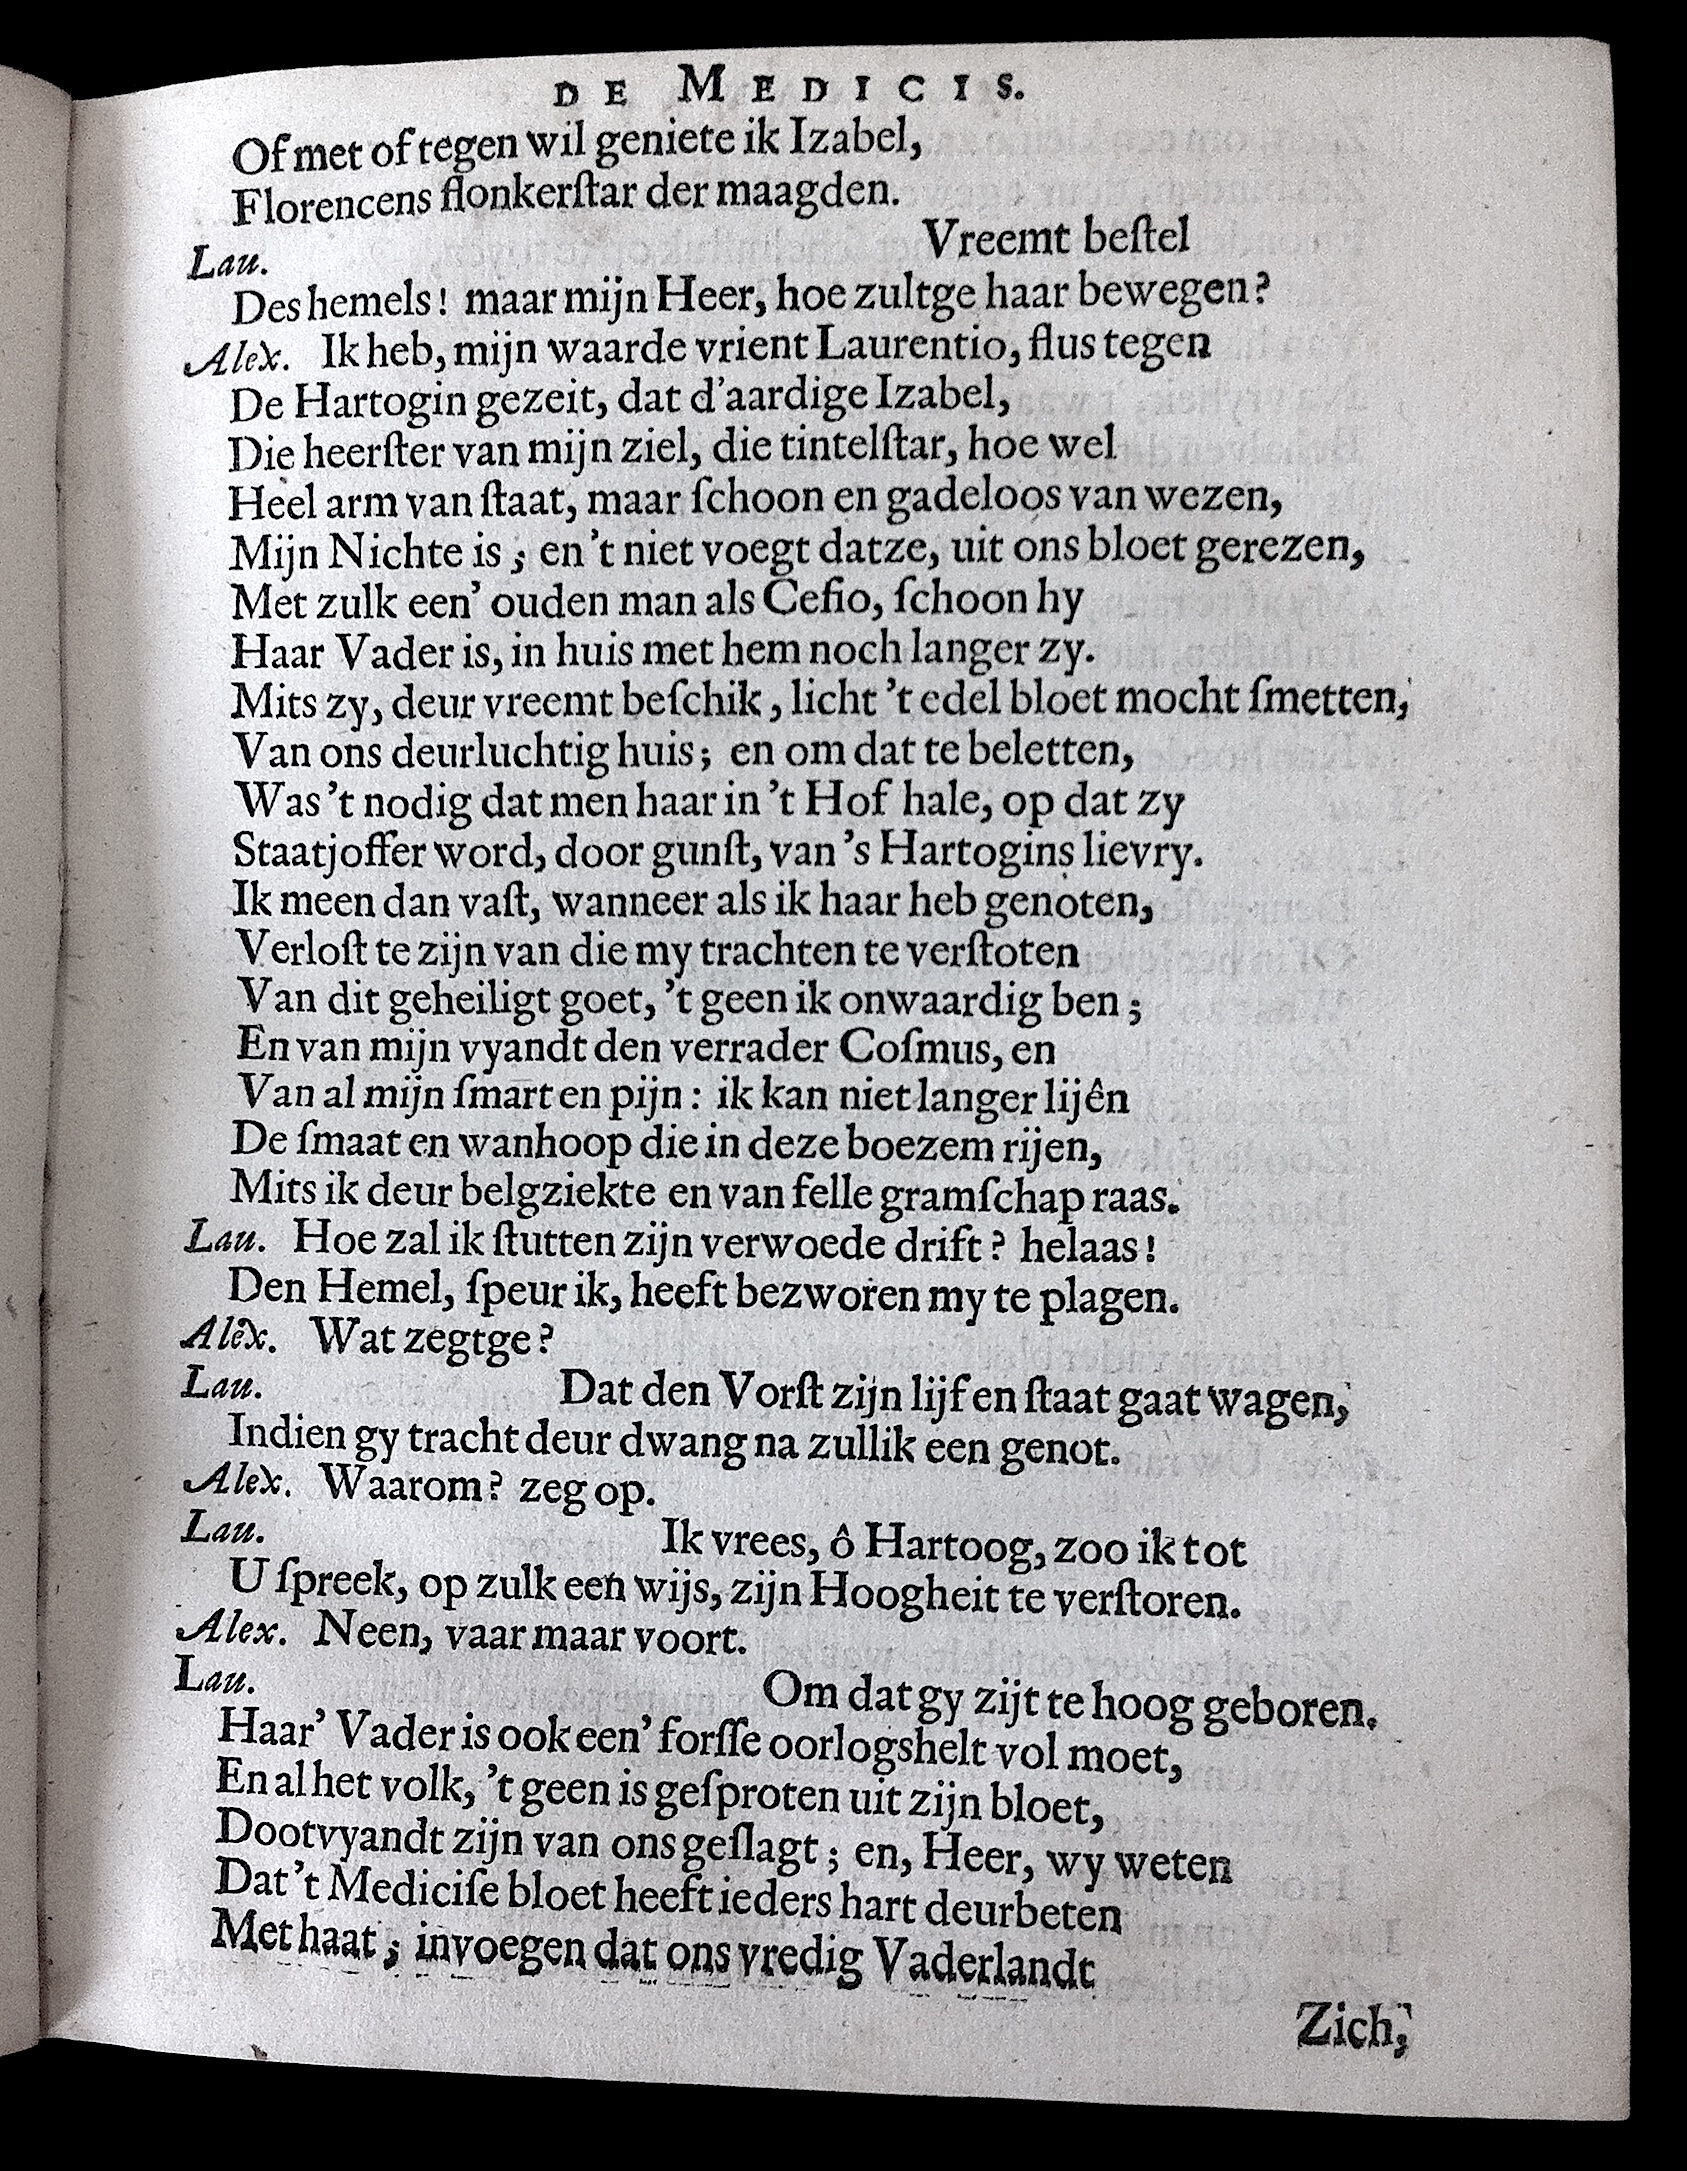 DE MEDICIS.
Of met of tegen wil geniete ik Izabel,
Florencens flonkerſtar der maagden.
Lau. Vreemt beſtel
Des hemels! maar mijn Heer, hoe zultge haar bewegen?
Alex. Ik heb, mijn waarde vrient Laurentio, flus tegen
De Hartogin gezeit, dat d'aardige Izabel,
Die heerſter van mijn ziel, die tintelſtar, hoe wel
Heel arm van ſtaat, maar ſchoon en gadeloos van wezen,
Mijn Nichte is; en 't niet voegt datze, uit ons bloet gerezen,
Met zulk een' ouden man als Ceſio, ſchoon hy
Haar Vader is, in huis met hem noch langer zy.
Mits zy, deur vreemt beſchik, licht 't edel bloet mocht ſmetten,
Van ons deurluchtig huis; en om dat te beletten,
Was 't nodig dat men haar in 't Hof hale, op dat zy
Staatjoffer word, door gunſt, van 's Hartogins lievry.
Ik meen dan vaſt, wanneer als ik haar heb genoten,
Verloſt te zijn van die my trachten te verſtoten
Van dit geheiligt goet, 't geen ik onwaardig ben;
En van mijn vyandt den verrader Coſmus, en
Van al mijn ſmart en pijn: ik kan niet langer lijên
De ſmaat en wanhoop die in deze boezem rijen,
Mits ik deur belgziekte en van felle gramſchap raas.
Lau. Hoe zal ik ſtutten zijn verwoede drift? helaas!
Den Hemel, ſpeur ik, heeft bezworen my te plagen.
Alex. Wat zegtge?
Lau. Dat den Vorſt zijn lijf en ſtaat gaat wagen,
Indien gy tracht deur dwang na zullik een genot.
Alex. Waarom? zeg op.
Lau. Ik vrees, ô Hartoog, zoo ik tot
U ſpreek, op zulk een wijs, zijn Hoogheit te verſtoren.
Alex. Neen, vaar maar voort.
Lau. Om dat gy zijt te hoog geboren.
Haar' Vader is ook een' forſſe oorlogshelt vol moet,
En al het volk, 't geen is geſproten uit zijn bloet,
Dootvyandt zijn van ons geſlagt; en, Heer, wy weten
Dat 't Mediciſe bloet heeft ieders hart deurbeten
Met haat; invoegen dat ons vredig Vaderlandt
Zich,